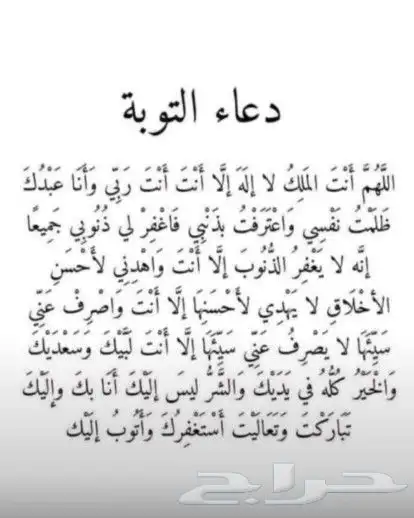 دعاء التوبة
اللَّهُمَّ أَنْتَ المَلِكُ لا إلَهَ إلَّا أَنْتَ أَنْتَ رَبِّي وَأَنَا عَبْدُكَ
ظَلَمْتُ نَفْسِي وَاعْتَرَفْتُ بذَنْبِي فَاغْفِرْ لي ذُنُوبِي جَمِيعًا
إنَّه لا يَغْفِرُ الذُّنُوبَ إلَّا أَنْتَ وَاهْدِنِي لأَحْسَنِ
الأخْلَاقِ لا يَهْدِي لأَحْسَنِهَا إلَّا أَنْتَ وَاصْرِفْ عَنِّي
سَيِّئَهَا لا يَصْرِفُ عَنِّي سَيِّئَهَا إلَّا أَنْتَ لَبَّيْكَ وَسَعْدَيْكَ
وَالْخَيْرُ كُلُّهُ في يَدَيْكَ وَالشَّرُّ ليسَ إلَيْكَ أَنَا بكَ وإلَيْكَ
تَبَارَكْتَ وَتَعَالَيْتَ أَسْتَغْفِرُكَ وَأَتُوبُ إلَيْك
حراج